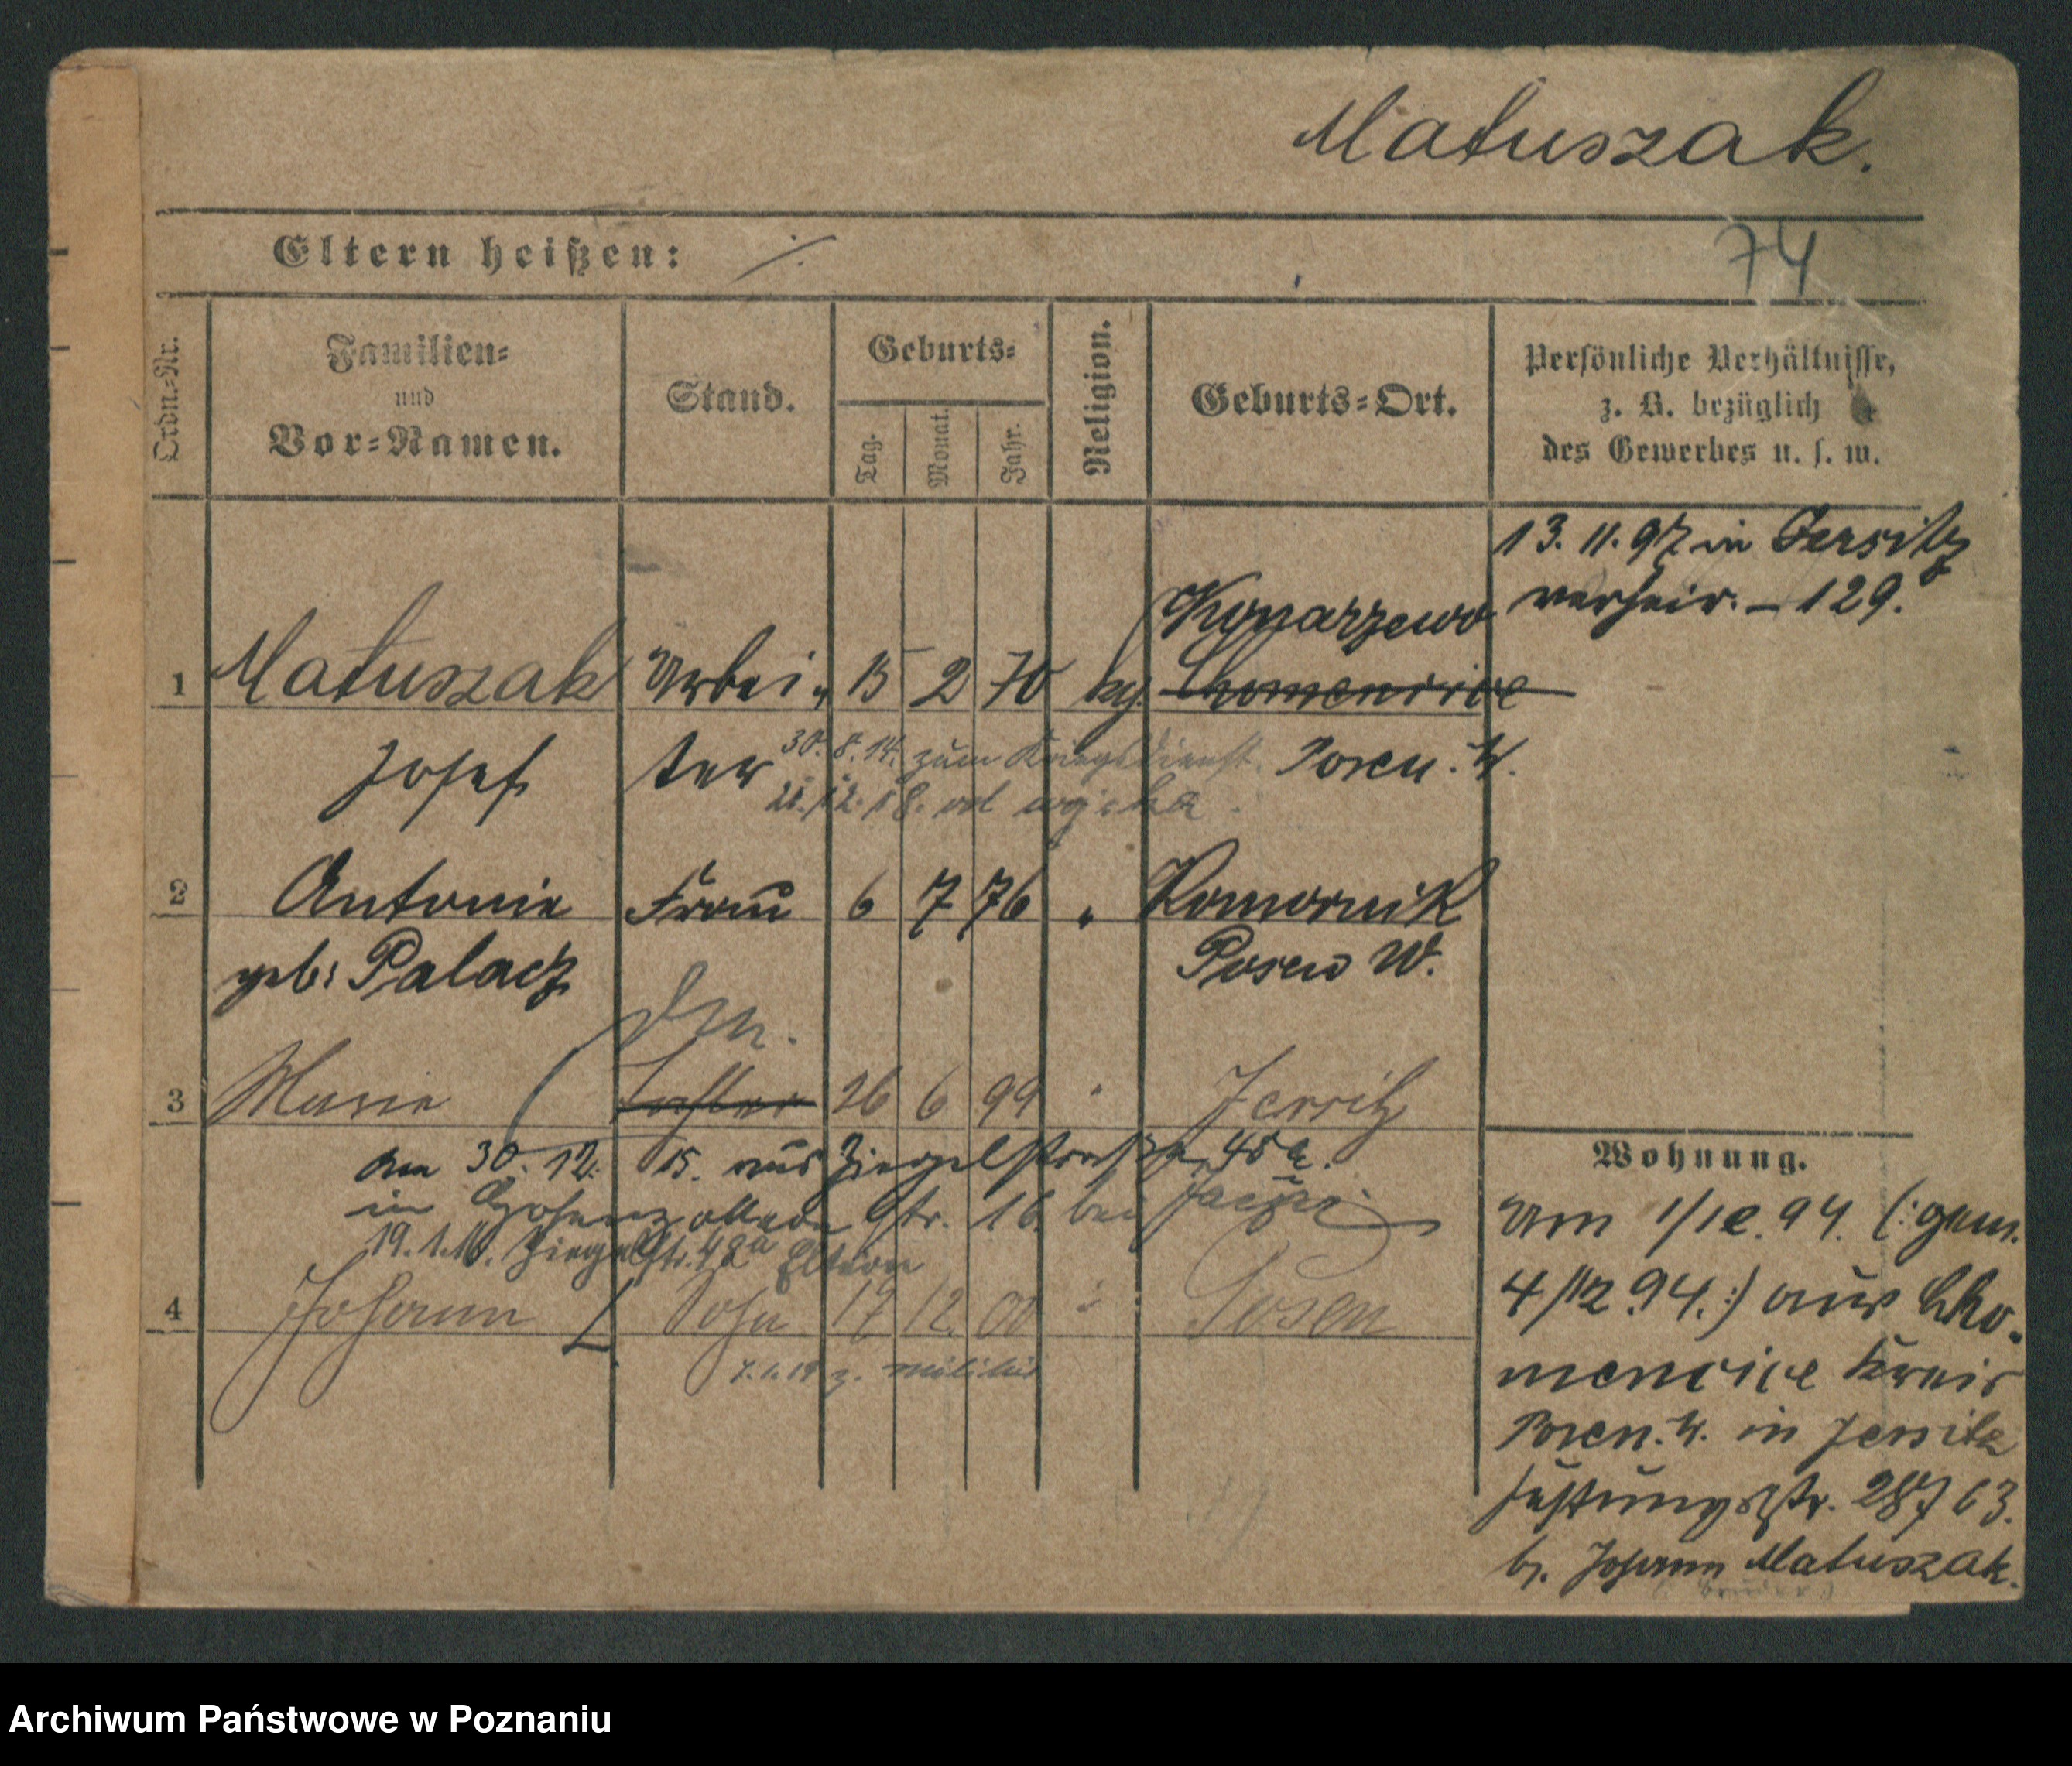 Matuszak.
Eltern heißen: ⁒
74
Ordn.-Nr.
Familien-
und
Vor-Namen.
Stand.
Geburts-
Tag.
Monat.
Jahr.
Religion.
Geburts-Ort.
Persönliche Verhältnisse,
z. B. bezüglich
des Gewerbes u. s. w.
13. 11. 97 in Jersitz
verheir. – 129.
Konarzewo
1 Matuszak Arbei- 15 2 70 kg. Chomencice
Josef ter Posen. W.
30. 8. 14. zum Kriegsdienst.
21. 12. 18. od wojska.
2 Antonie Frau 6 7 76 " Komornik
geb: Palacz Posen W.
Dm.
3 Marie Tochter 26 6 99 " Jersitz
am 30. 12. 15. aus Ziegelstraße 45a.
in Hohenzollern Str. 16 bei
19.1.16. Ziegelstr. 48a Eltern
4 Johann Sohn 17 12. 00 " Posen
7.1.19 z. Militär
Wohnung.
Am 1/12. 94. (: gem.
4/12 94. :) aus Cho-
mencice Kreis
Posen. W. in Jersitz
Festungsstr. 287 63.
b. Johann Matuszak.
(: Bruder :)
Archiwum Państwowe w Poznaniu